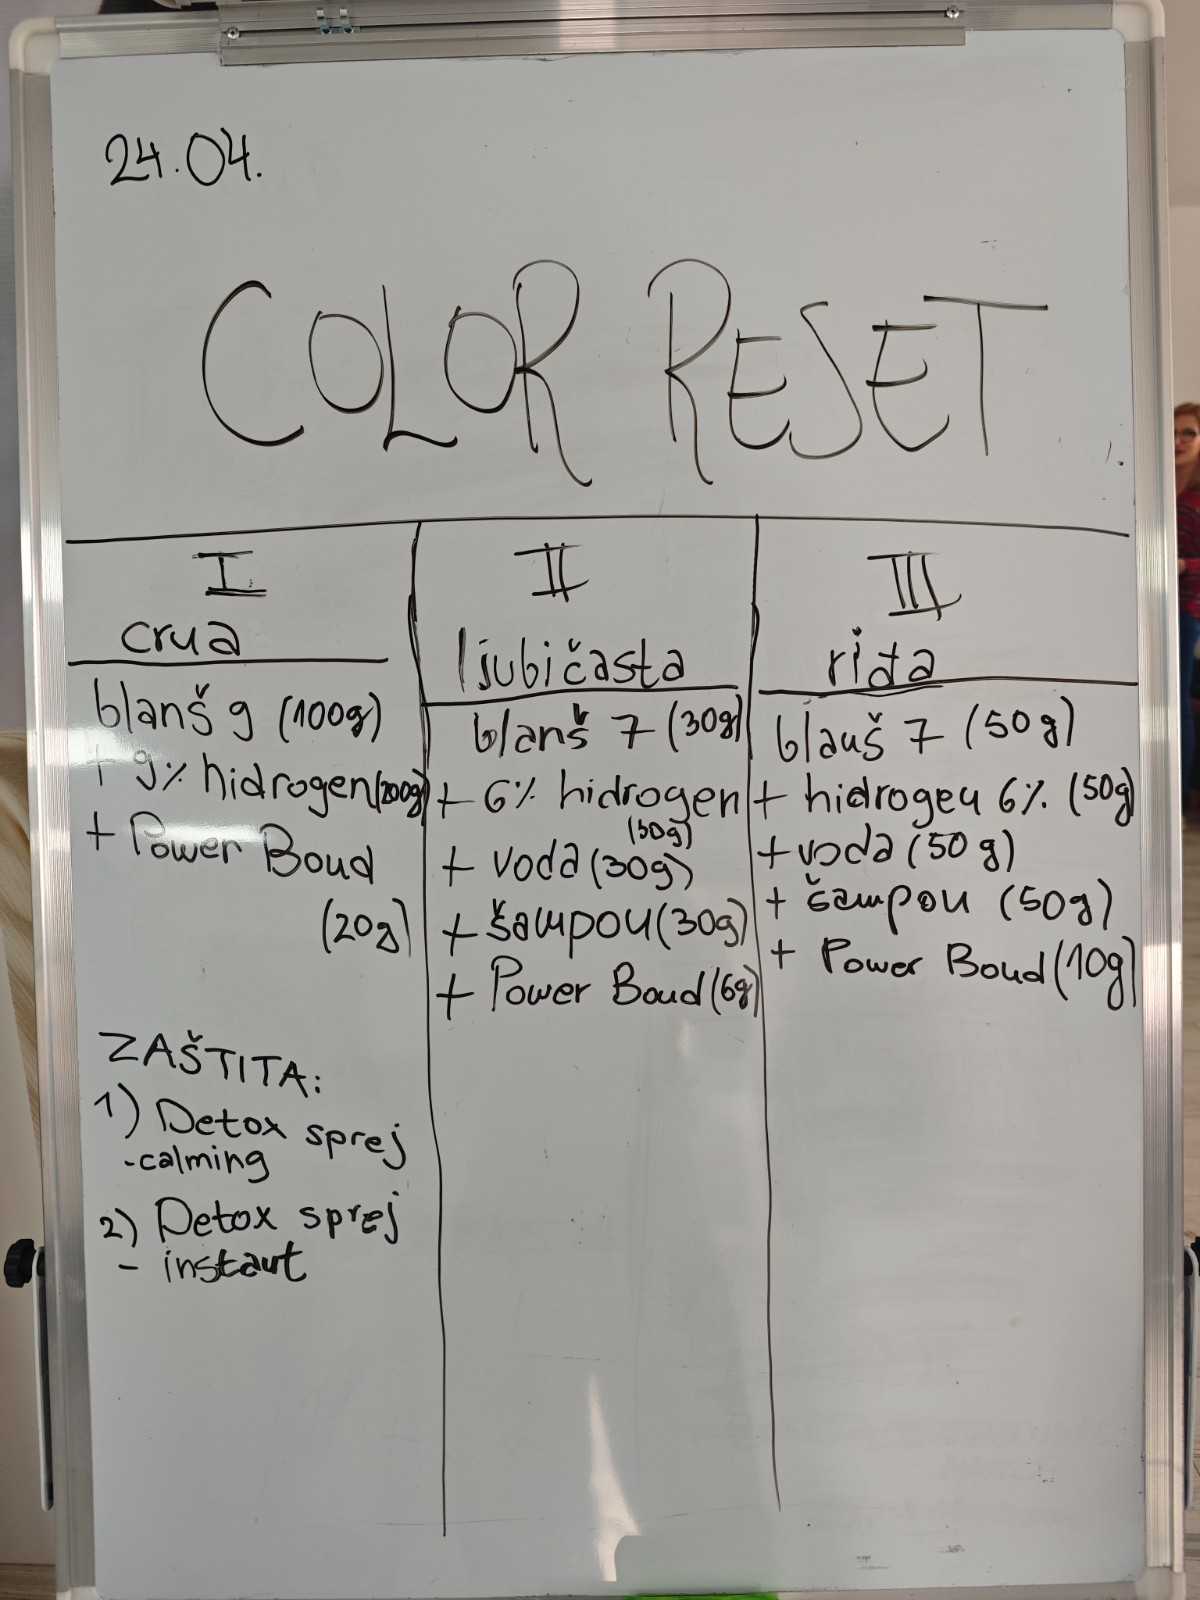 24.04.
COLOR RESET
I
crna
blanš 9 (100g)
+ 9% hidrogen (200g)
+ Power Bond
(20g)
ZAŠTITA:
1) Detox sprej
- calming
2) Detox sprej
- instant
II
ljubičasta
blanš 7 (30g)
+ 6% hidrogen
(30g)
+ voda (30g)
+ šampon (30g)
+ Power Bond (6g)
III
riđa
blanš 7 (50g)
+ hidrogen 6% (50g)
+ voda (50g)
+ šampon (50g)
+ Power Bond (10g)